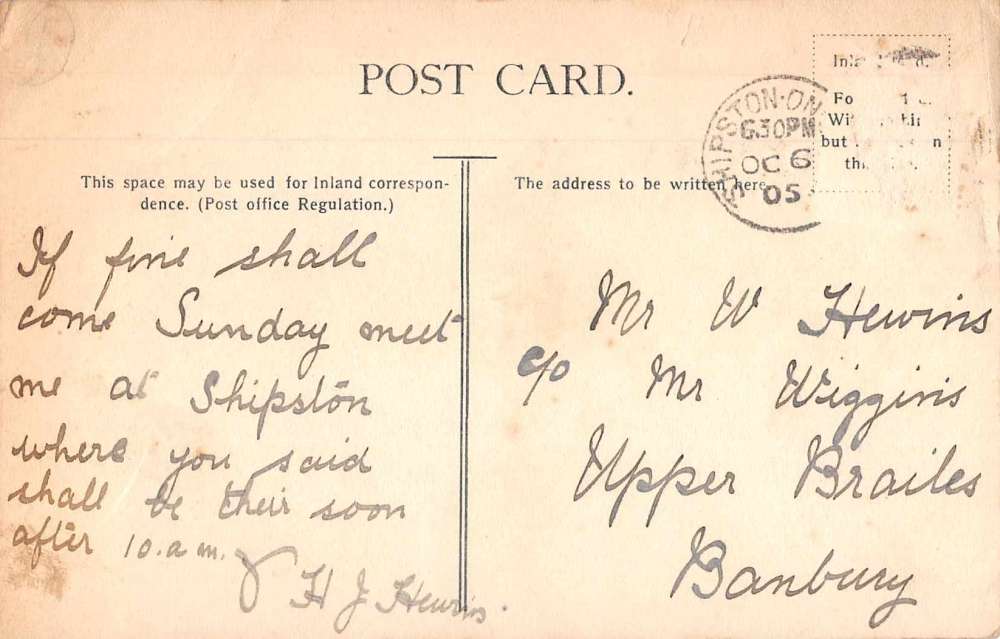 POST CARD.
SHIPSTON-ON
6.30PM
OC 6
05
but n
This space may be used for Inland correspon-
dence. (Post office Regulation.)
The address to be written here.
If fine shall
come Sunday meet
me at Shipston
where you said
shall be their soon
after 10.a.m.
H J Hewins.
Mr W Hewins
c/o Mr Wiggins
Upper Brailes
Banbury